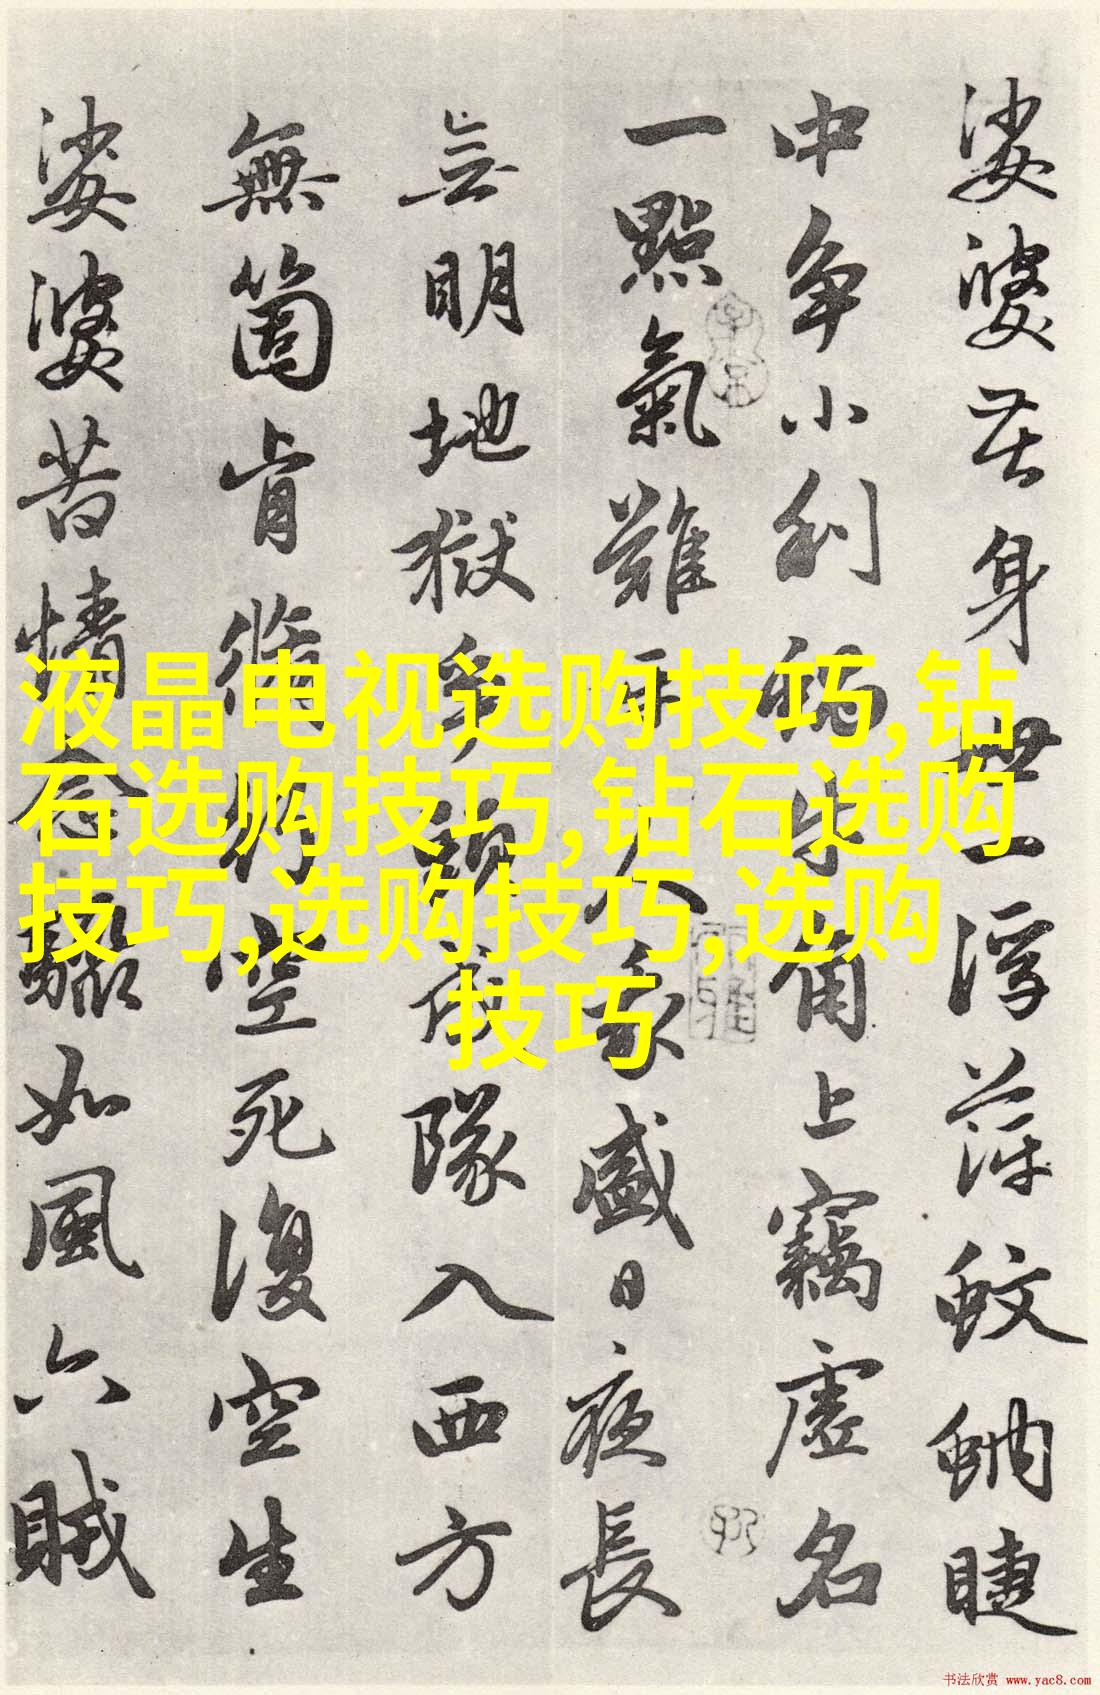 娑婆苦身世一浮萍蚊蚋睫
中争小利蝸牛角上竊虛名
一點氣難平人我盛日夜長
無明地獄爭頭成隊入西方
無箇肯修行空死復空生
娑婆苦情念驟如風六賊
液晶电视选购技巧,钻
石选购技巧,钻石选购
技巧,选购技巧,选购
技巧
书法欣赏 www.yac8.com